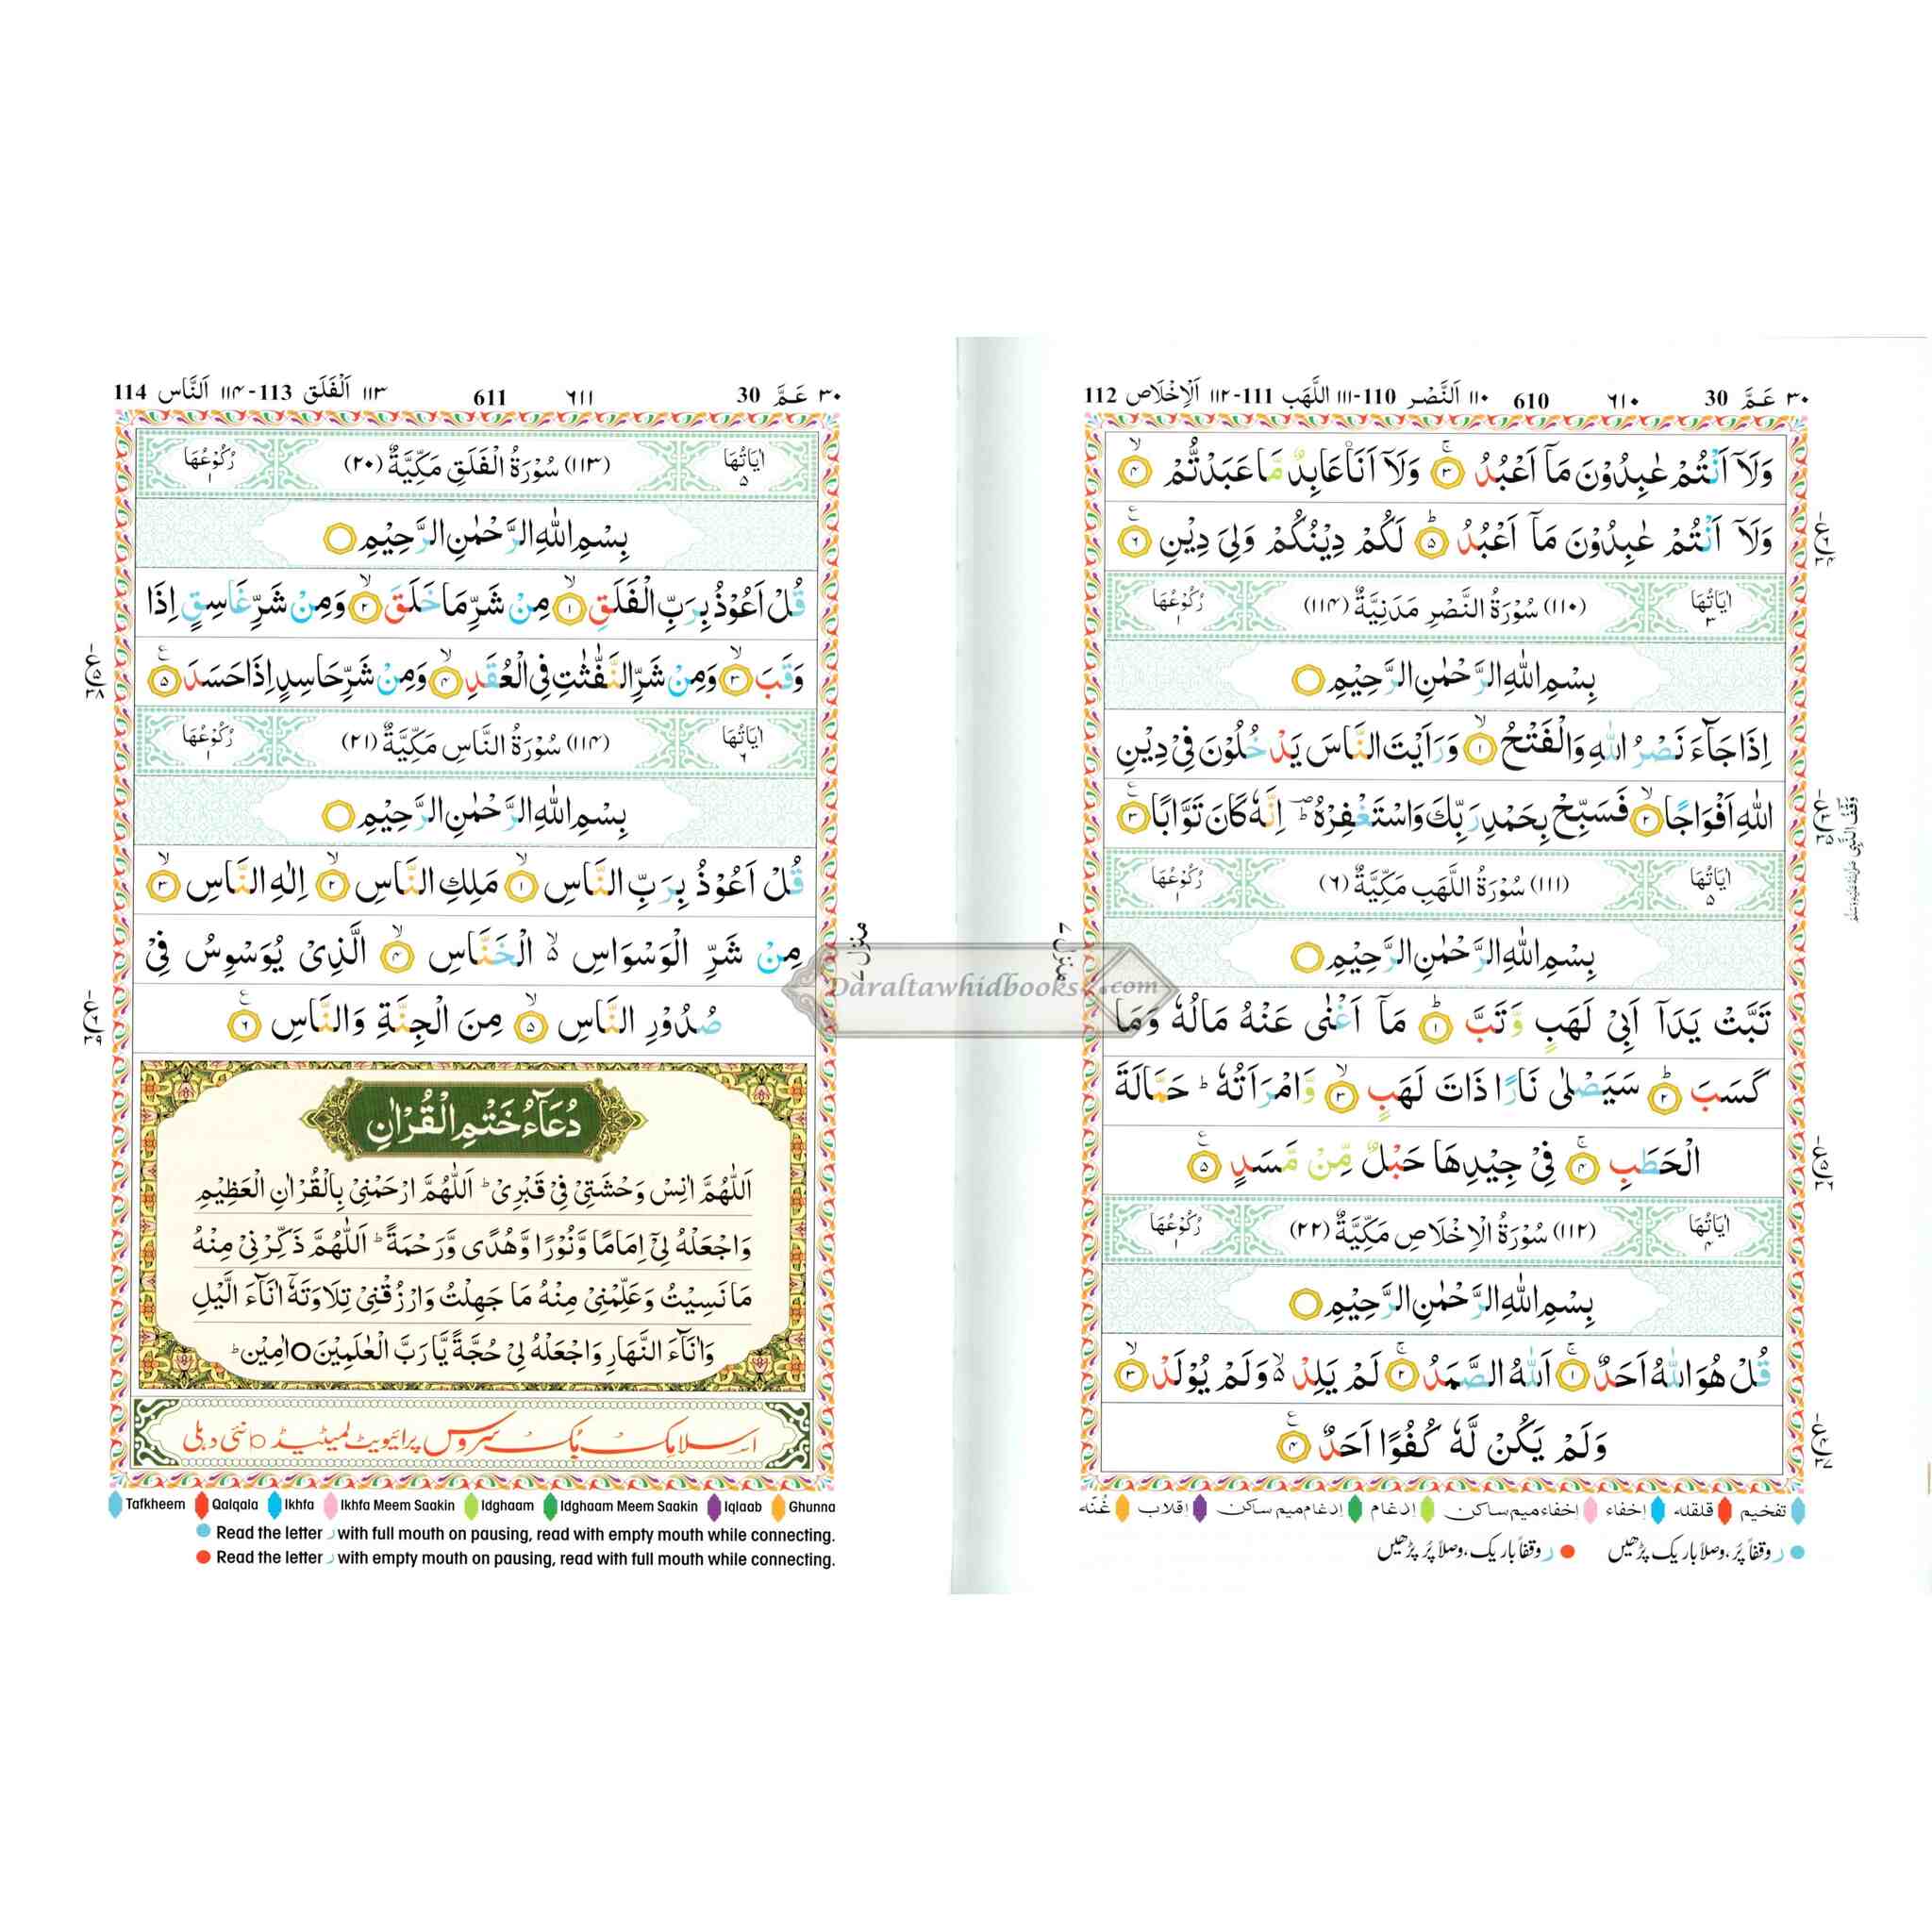 ٣٠ عَمَّ 30 ٦١٠ 610 ١١٠ اَلنَّصْر 110-١١١ اللَّهَب 111-١١٢ اَلْاِخْلَاص 112
وَلَآ اَنْتُمْ عٰبِدُوْنَ مَآ اَعْبُدُ ۚ ٣ وَلَآ اَنَا۠ عَابِدٌ مَّا عَبَدْتُّمْ ۙ ٤
وَلَآ اَنْتُمْ عٰبِدُوْنَ مَآ اَعْبُدُ ؕ ٥ لَكُمْ دِيْنُكُمْ وَلِيَ دِيْنِ ٦
اٰيَاتُهَا ٣ (١١٠) سُوْرَةُ النَّصْرِ مَدَنِيَّةٌ (١١٤) رُكُوْعُهَا ١
بِسْمِ اللّٰهِ الرَّحْمٰنِ الرَّحِيْمِ
اِذَا جَآءَ نَصْرُ اللّٰهِ وَالْفَتْحُ ۙ ١ وَرَاَيْتَ النَّاسَ يَدْخُلُوْنَ فِيْ دِيْنِ
اللّٰهِ اَفْوَاجًا ۙ ٢ فَسَبِّحْ بِحَمْدِ رَبِّكَ وَاسْتَغْفِرْهُ ؕ اِنَّهٗ كَانَ تَوَّابًا ٣
اٰيَاتُهَا ٥ (١١١) سُوْرَةُ اللَّهَبِ مَكِّيَّةٌ (٦) رُكُوْعُهَا ١
بِسْمِ اللّٰهِ الرَّحْمٰنِ الرَّحِيْمِ
تَبَّتْ يَدَآ اَبِيْ لَهَبٍ وَّتَبَّ ؕ ١ مَآ اَغْنٰى عَنْهُ مَالُهٗ وَمَا
كَسَبَ ؕ ٢ سَيَصْلٰى نَارًا ذَاتَ لَهَبٍ ۙ ٣ وَّامْرَاَتُهٗ ؕ حَمَّالَةَ
الْحَطَبِ ۚ ٤ فِيْ جِيْدِهَا حَبْلٌ مِّنْ مَّسَدٍ ٥
اٰيَاتُهَا ٤ (١١٢) سُوْرَةُ الْاِخْلَاصِ مَكِّيَّةٌ (٢٢) رُكُوْعُهَا ١
بِسْمِ اللّٰهِ الرَّحْمٰنِ الرَّحِيْمِ
قُلْ هُوَ اللّٰهُ اَحَدٌ ۚ ١ اَللّٰهُ الصَّمَدُ ۚ ٢ لَمْ يَلِدْ ۙ۬ وَلَمْ يُوْلَدْ ۙ ٣
وَلَمْ يَكُنْ لَّهٗ كُفُوًا اَحَدٌ ٤
منزل ٧
تفخیم قلقله اِخفاء اِخفاءمیم ساکن اِدغام اِدغام میم ساکن اِقلاب غُنّه
ر وقفاً پُر، وصلاً باریک پڑھیں ر وقفاً باریک، وصلاً پُر پڑھیں
Daraltawhidbooks.com
٣٠ عَمَّ 30 ٦١١ 611 ١١٣ اَلْفَلَق 113-١١٤ اَلنَّاس 114
اٰيَاتُهَا ٥ (١١٣) سُوْرَةُ الْفَلَقِ مَكِّيَّةٌ (٢٠) رُكُوْعُهَا ١
بِسْمِ اللّٰهِ الرَّحْمٰنِ الرَّحِيْمِ
قُلْ اَعُوْذُ بِرَبِّ الْفَلَقِ ۙ ١ مِنْ شَرِّ مَا خَلَقَ ۙ ٢ وَمِنْ شَرِّ غَاسِقٍ اِذَا
وَقَبَ ۙ ٣ وَمِنْ شَرِّ النَّفّٰثٰتِ فِي الْعُقَدِ ۙ ٤ وَمِنْ شَرِّ حَاسِدٍ اِذَا حَسَدَ ٥
اٰيَاتُهَا ٦ (١١٤) سُوْرَةُ النَّاسِ مَكِّيَّةٌ (٢١) رُكُوْعُهَا ١
بِسْمِ اللّٰهِ الرَّحْمٰنِ الرَّحِيْمِ
قُلْ اَعُوْذُ بِرَبِّ النَّاسِ ۙ ١ مَلِكِ النَّاسِ ۙ ٢ اِلٰهِ النَّاسِ ۙ ٣
مِنْ شَرِّ الْوَسْوَاسِ ۙ۬ الْخَنَّاسِ ۙ ٤ الَّذِيْ يُوَسْوِسُ فِيْ
صُدُوْرِ النَّاسِ ۙ ٥ مِنَ الْجِنَّةِ وَالنَّاسِ ٦
منزل ٧
دُعَآءُ خَتْمِ الْقُرْاٰنِ
اَللّٰهُمَّ اٰنِسْ وَحْشَتِيْ فِيْ قَبْرِيْ ؕ اَللّٰهُمَّ ارْحَمْنِيْ بِالْقُرْاٰنِ الْعَظِيْمِ
وَاجْعَلْهُ لِيْٓ اِمَامًا وَّنُوْرًا وَّهُدًى وَّرَحْمَةً ؕ اَللّٰهُمَّ ذَكِّرْنِيْ مِنْهُ
مَا نَسِيْتُ وَعَلِّمْنِيْ مِنْهُ مَا جَهِلْتُ وَارْزُقْنِيْ تِلَاوَتَهٗٓ اٰنَآءَ الَّيْلِ
وَاٰنَآءَ النَّهَارِ وَاجْعَلْهُ لِيْ حُجَّةً يَّا رَبَّ الْعٰلَمِيْنَ ○ اٰمِيْن ؕ
اسلامک بک سروس پرائیویٹ لمیٹیڈ نئی دہلی
Tafkheem Qalqala Ikhfa Ikhfa Meem Saakin Idghaam Idghaam Meem Saakin Iqlaab Ghunna
Read the letter ر with full mouth on pausing, read with empty mouth while connecting.
Read the letter ر with empty mouth on pausing, read with full mouth while connecting.